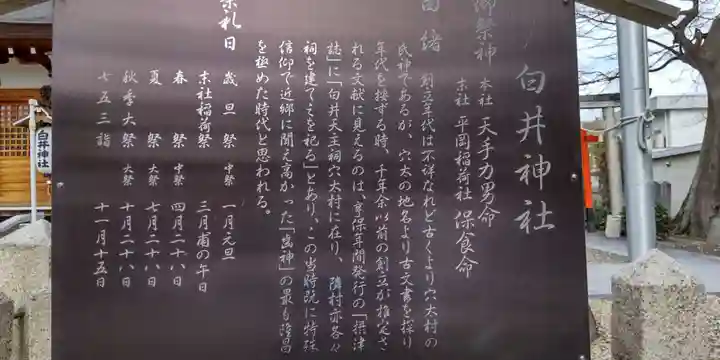 白井神社
御祭神 本社 天手力男命
末社 平岡稲荷社 保食命
由緒 創立年代は不詳なれど古くより穴太村の
氏神であるが、穴太の地名より古文書を採り
年代を按する時、千年余以前の創立が推定さ
れる文献に見えるのは、享保年間発行の「摂津
誌」に「白井天王祠穴太村に在り、隣村亦各々
祠を建てゝを祀る」とあり、この当時既に特殊
信仰で近郷に聞え高かった「歯神」の最も隆昌
を極めた時代と思われる。
祭礼日
歳旦祭 中祭 一月元旦
末社稲荷祭 三月浦の午日
春祭 中祭 四月二十八日
夏祭 大祭 七月二十八日
秋季大祭 大祭 十月二十八日
七五三詣 十一月十五日
白井神社